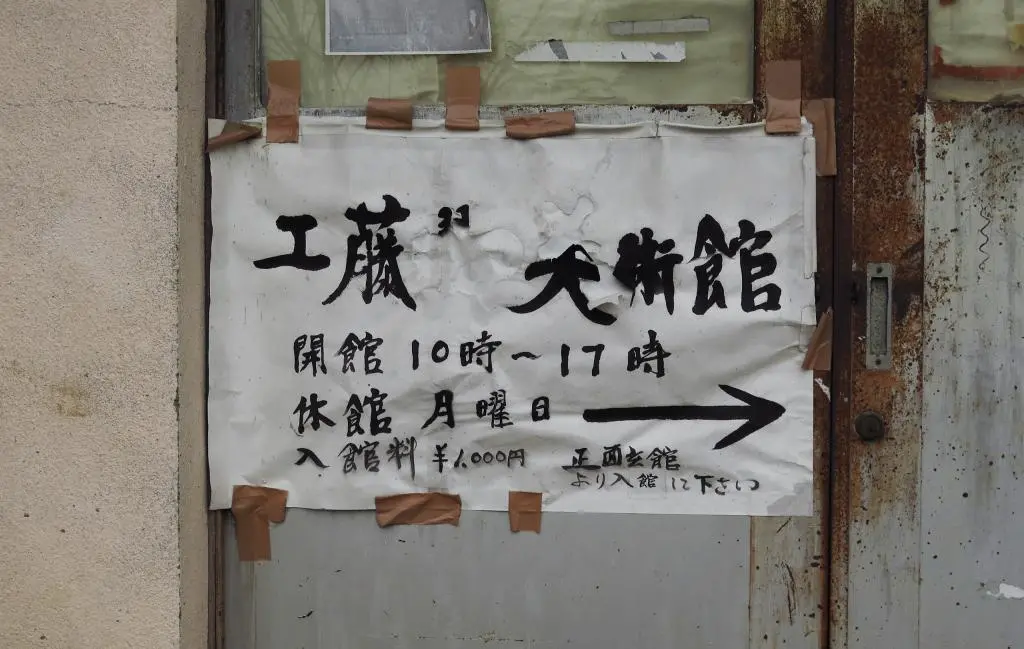 工藤 美術館
開館 10時～17時
休館 月曜日
入館料 ¥1.000円 正面玄館
より入館して下さい